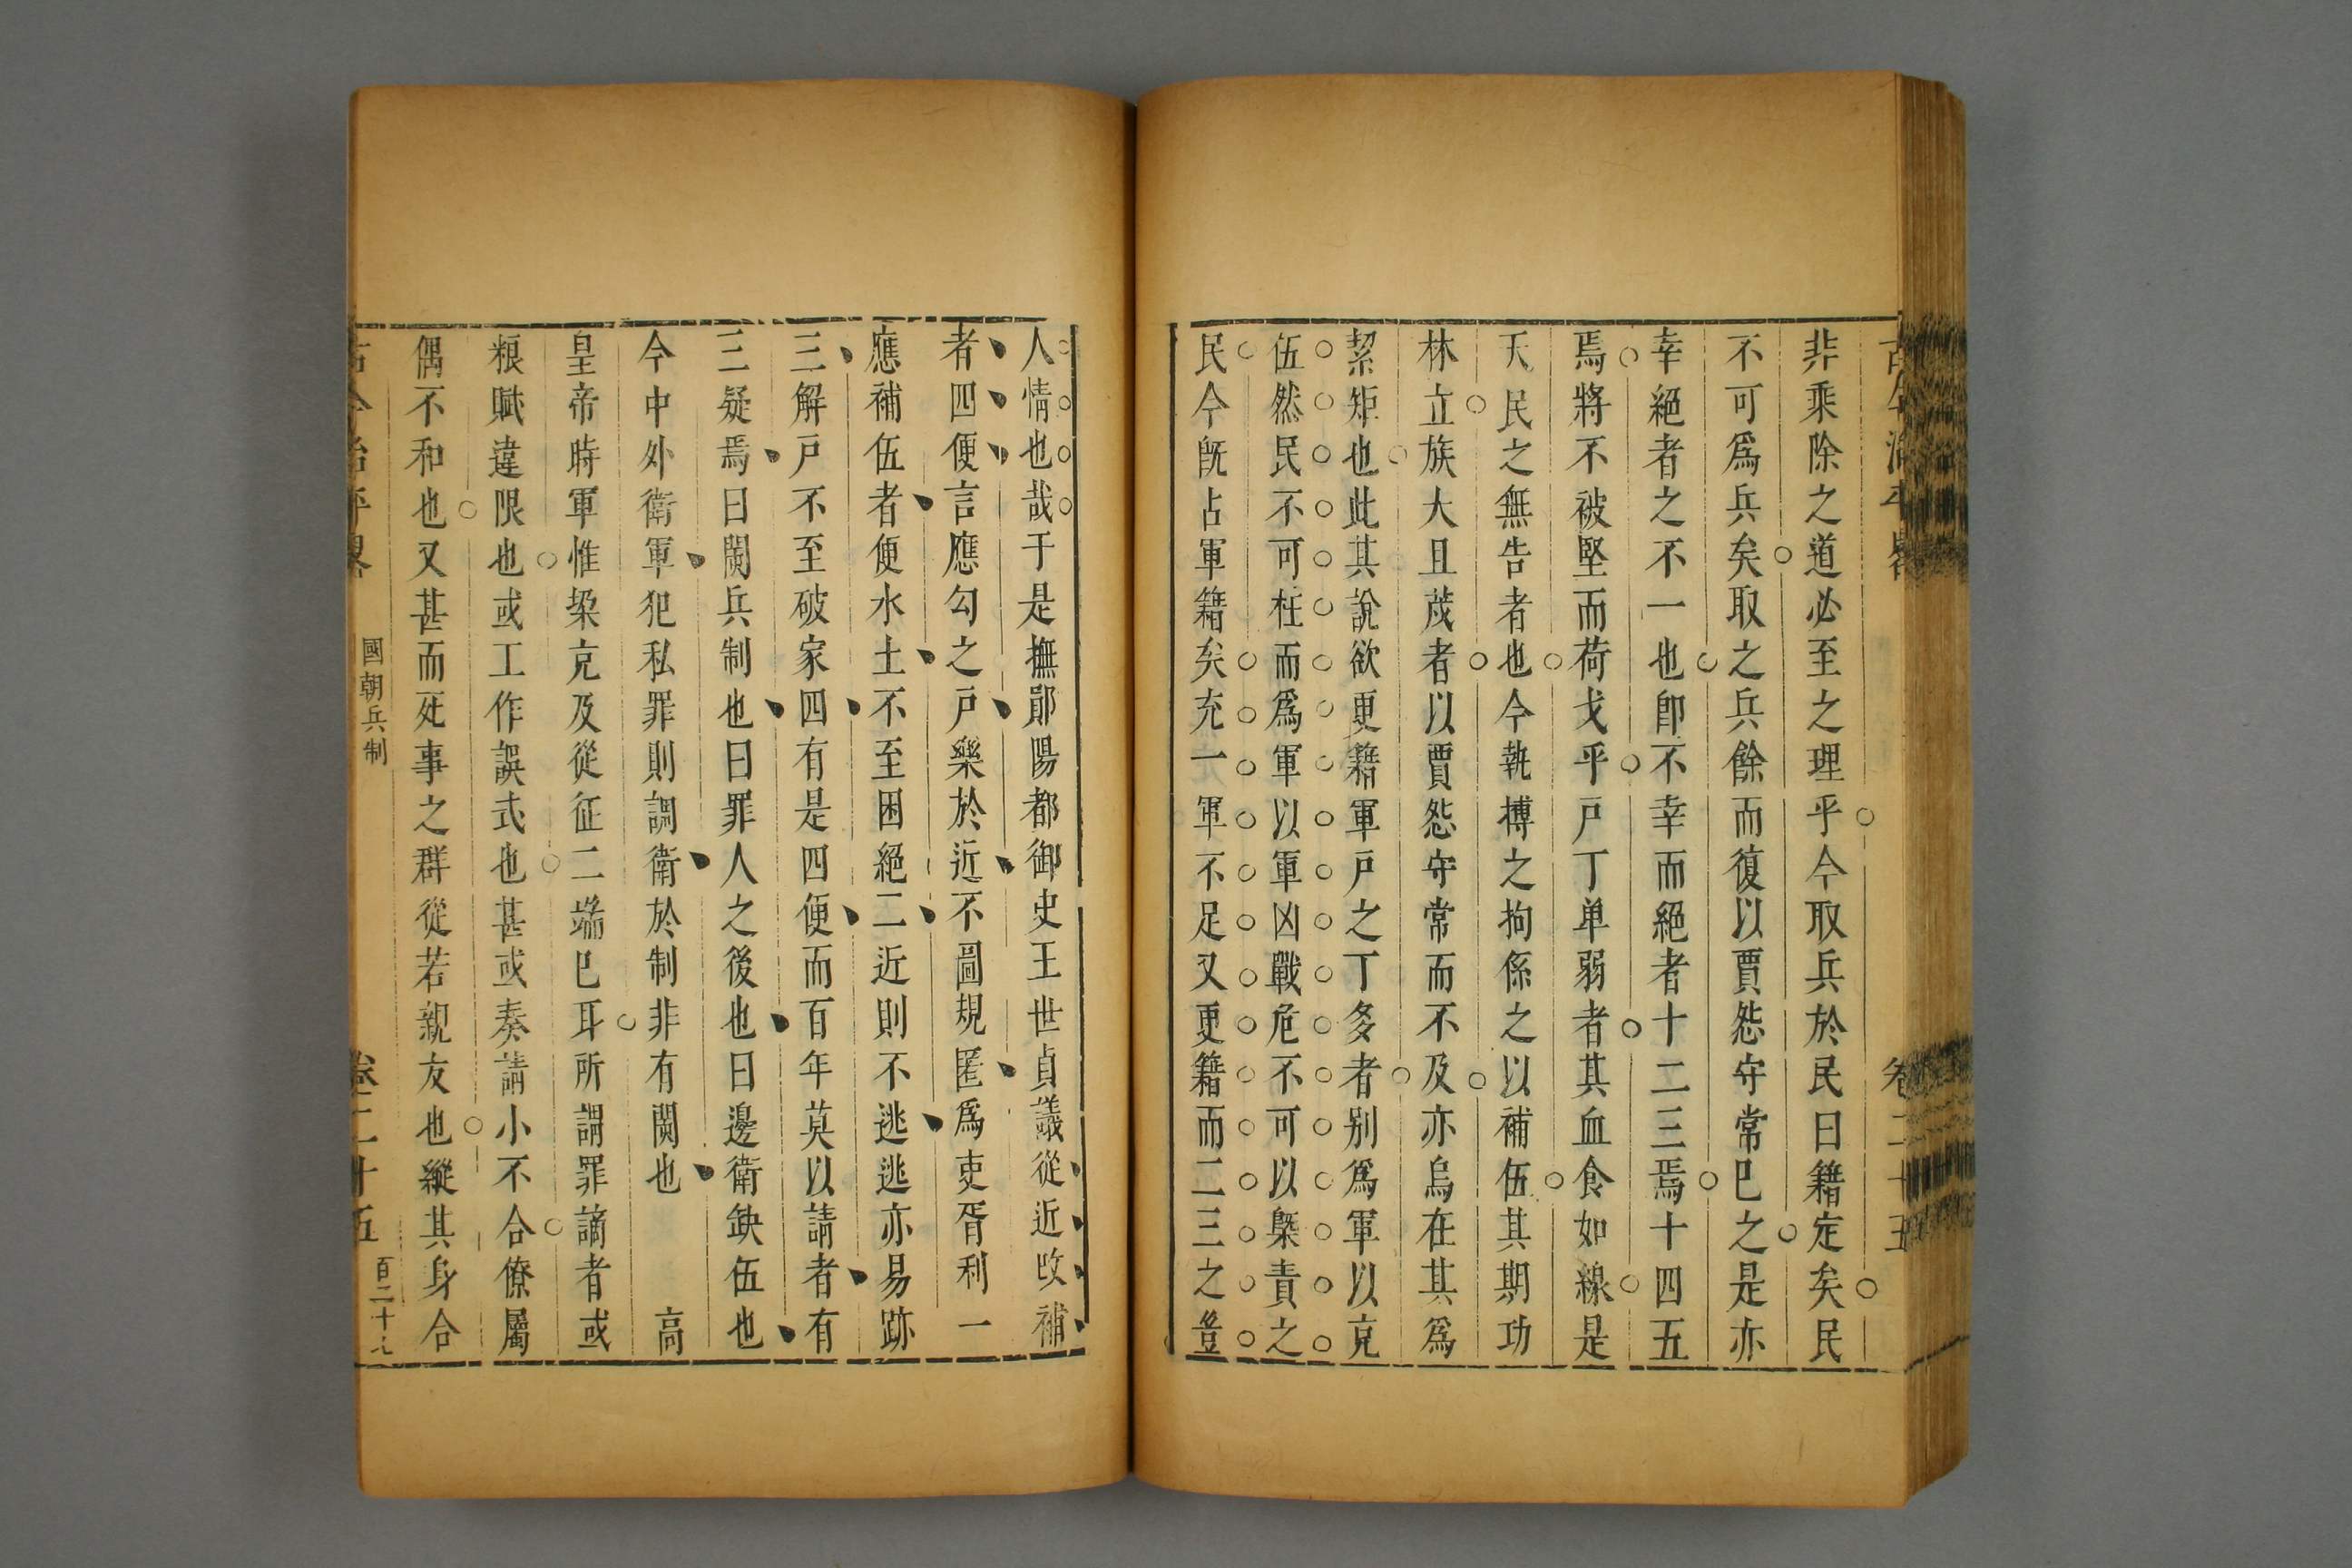 古今治平畧
卷二十五
非乘除之道必至之理乎今取兵於民曰籍定矣民
不可爲兵矣取之兵餘而復以賈怨守常巳之是亦
幸絕者之不一也卽不幸而絕者十二三焉十四五
焉將不被堅而荷戈乎戸丁单弱者其血食如線是
天民之無告者也今執摶之拘係之以補伍其期功
林立族大且茂者以賈怨守常而不及亦烏在其爲
絜矩也此其說欲更籍軍戸之丁多者别爲軍以充
伍然民不可枉而爲軍以軍凶戰危不可以槩責之
民今旣占軍籍矣充一軍不足又更籍而二三之豈
人情也哉于是撫鄖陽都御史王世貞議從近改補
者四便言應勾之戸樂於近不圖規匿爲吏胥利一
應補伍者便水土不至困絕二近則不逃逃亦易跡
三解戸不至破家四有是四便而百年莫以請者有
三疑焉曰閡兵制也曰罪人之後也曰邊衛缺伍也
今中外衛軍犯私罪則調衛於制非有閡也 高
皇帝時軍惟垜充及從征二端巳耳所謂罪謫者或
粮賦違限也或工作誤式也甚或奏請小不合僚屬
偶不和也又甚而死事之群從若親友也縱其身合
古今治平畧
國朝兵制
卷二十五
百二十七